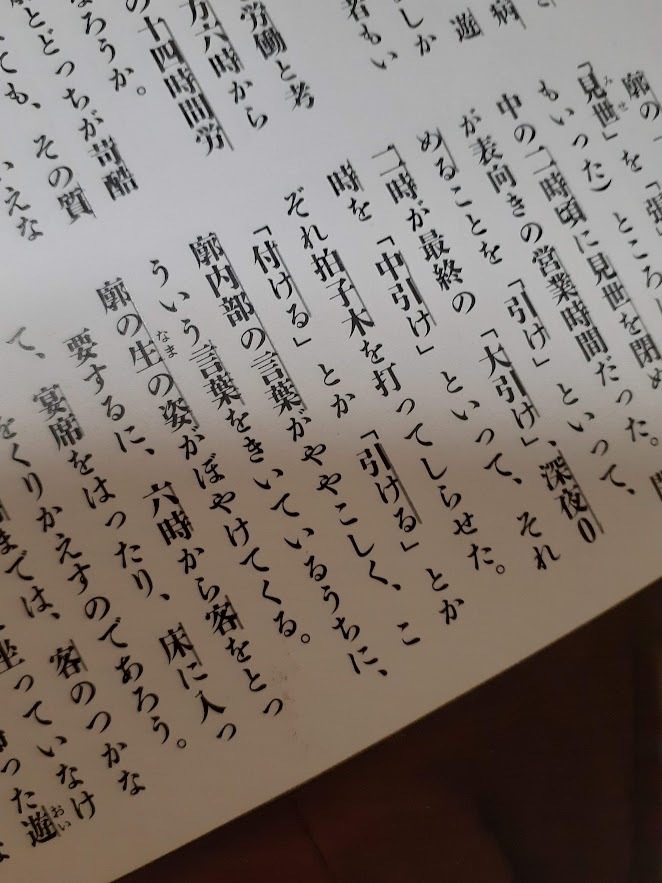 病
遊
しか
者もい
労働と考
方六時から
の十四時間労
なろうか。
とどっちが苛酷
ても、その質
いえな
廓の「
「見世」を「張
もいった）ところ
中の二時頃に見世を閉め
が表向きの営業時間だった。
めることを「引け」といって、
二時が最終の「大引け」、深夜０
時を「中引け」といって、それ
ぞれ拍子木を打ってしらせた。
「付ける」とか「引ける」とか
廓内部の言葉がややこしく、こ
ういう言葉をきいているうちに、
廓の生の姿がぼやけてくる。
要するに、六時から客をとっ
て、宴席をはったり、床に入っ
をくりかえすのであろう。
までは、客のつかな
坐っていなけ
った遊